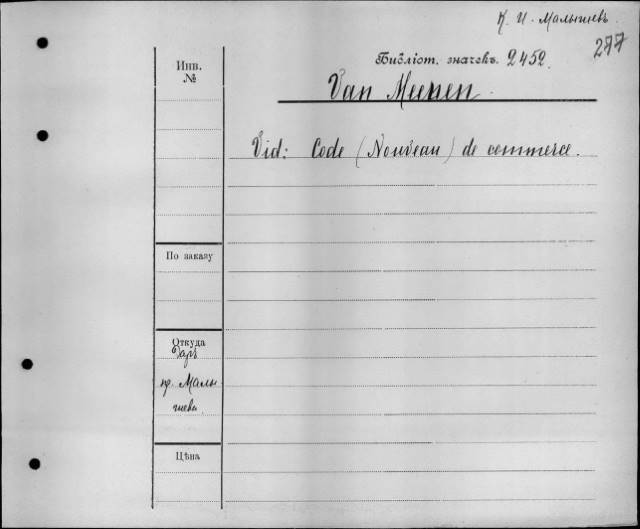 К. И. Малышевъ
277
Библіот. значекъ. 2452.
Инв.
№
Van Meenen.
Vid: Code (Nouveau) de commerce.
По заказу
Откуда
Даръ
пр. Малы
шева
Цѣна